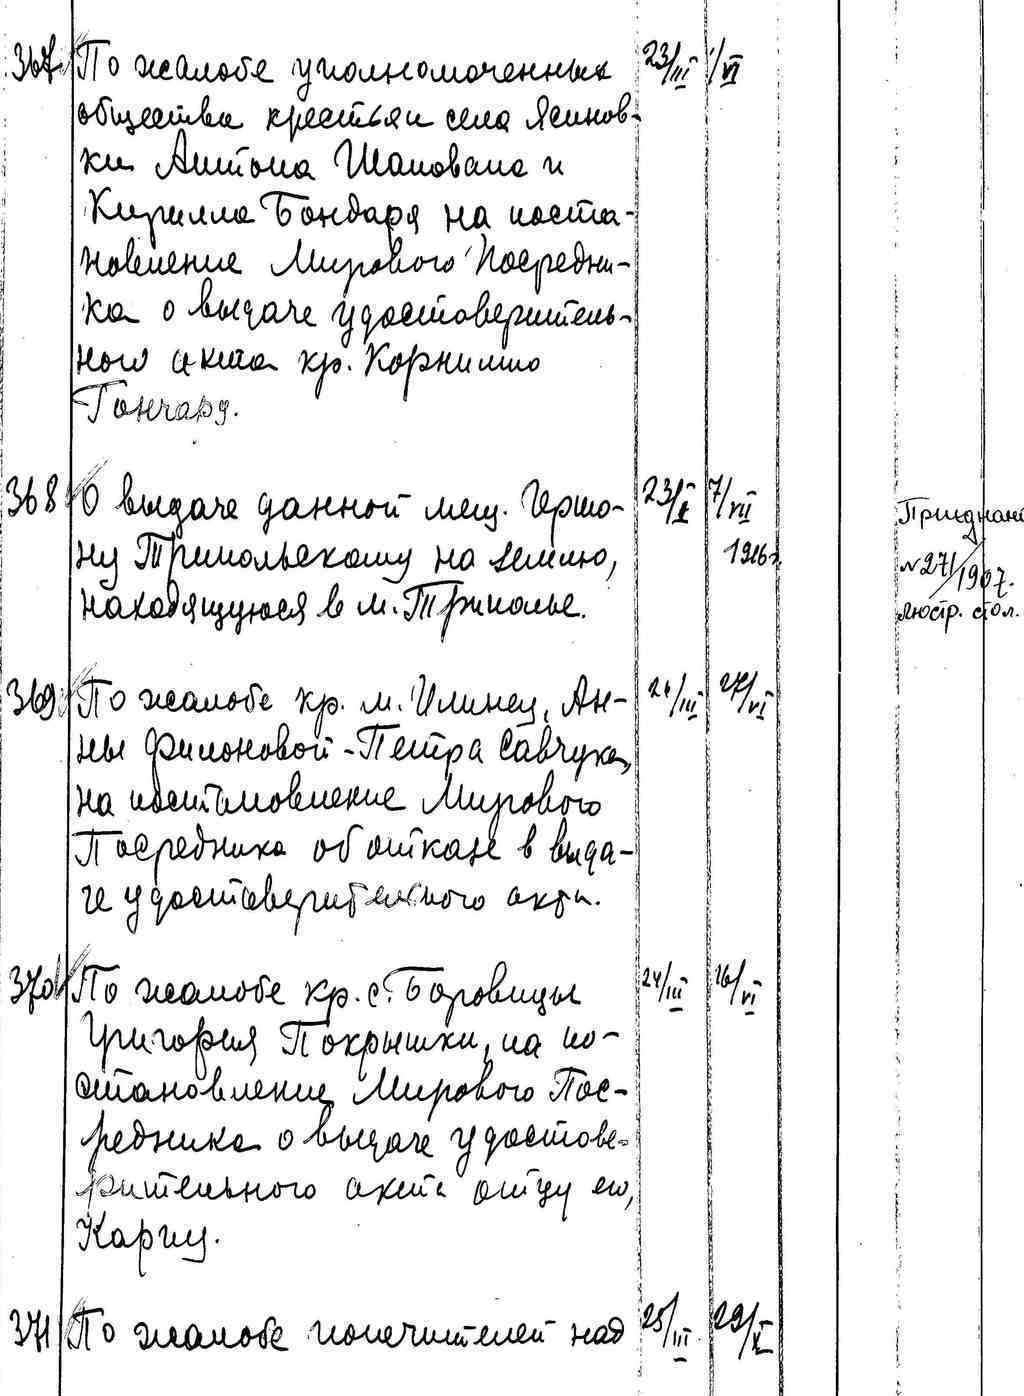 367 По жалобе уполномоченных 23/III 1/VI
общества крестьян села Яснов-
ки Антона Шаповала и
Кирилла Бондаря на поста-
новление Мирового Посредни-
ка о выдаче удостоверитель-
ного акта кр. Корнилию
Гончару.
368 О выдаче данной мещ. Гершо- 23/X 7/VII
ну Трипольскому на землю, 1916 г.
находящуюся в м. Триполье.
№ 271/1907.
люстр. стол.
369 По жалобе кр. м. Илинец, Ан- 24/III 27/VI
ны Филоновой-Петра Савчука,
на постановление Мирового
Посредника об отказе в выда-
че удостоверительного акта.
370 По жалобе кр. с. Боровицы 24/III 16/VI
Григория Покрышки, на по-
становление Мирового Пос-
редника о выдаче удостове-
рительного акта отцу его,
Карпу.
371 По жалобе попечителей над 25/III 29/X